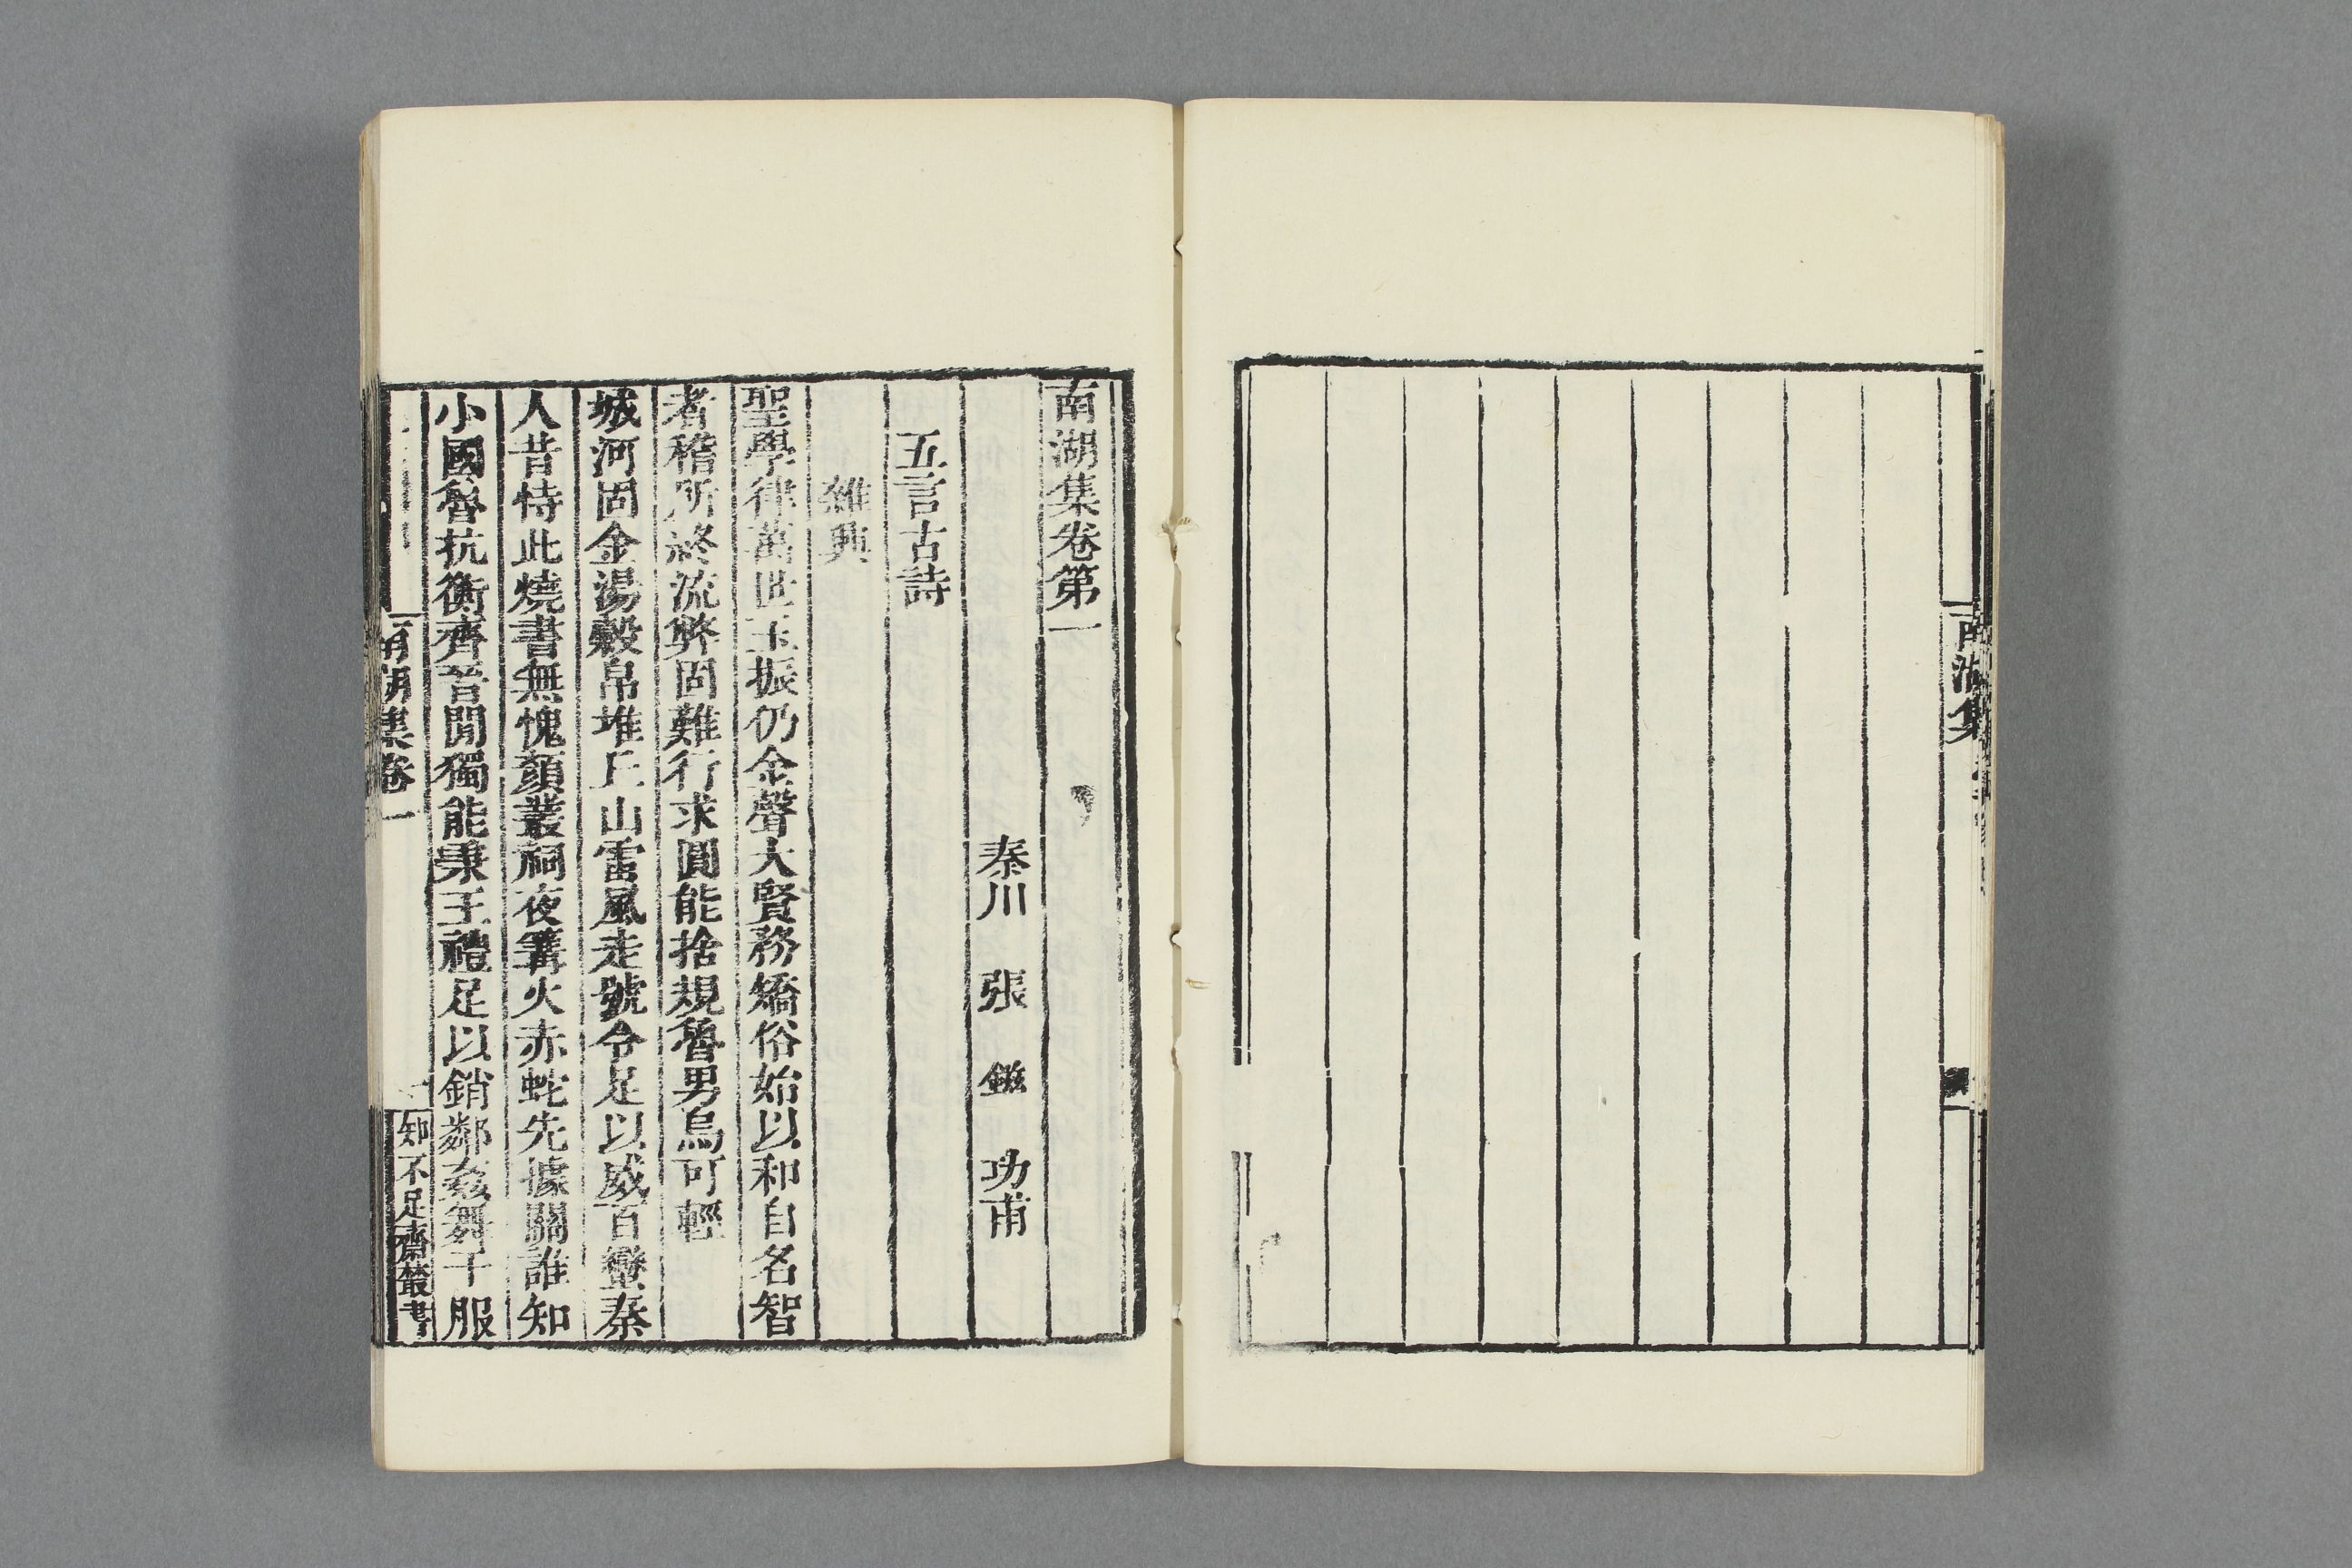 南湖集
南湖集卷第一
秦川 張 鎡 功甫
五言古詩
雜興
聖學律萬世玉振仍金聲大賢務矯俗始以和自名智
者稽所終流弊固難行求圓能捨規魯男烏可輕
城河固金湯穀帛堆丘山雷風走號令足以威百蠻秦
人昔恃此燒書無愧顏叢祠夜篝火赤蛇先據關誰知
小國魯抗衡齊晉閒獨能秉王禮足以銷鄰姦舞干服
南湖集卷一
知不足齋叢書